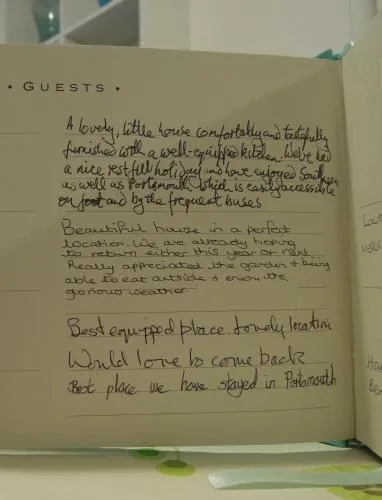 • GUESTS •
A lovely, little house comfortably and tastefully
furnished with a well-equipped kitchen. We've had
a nice restfull holiday and have enjoyed Southsea
as well as Portsmouth, which is easily accessible
on foot and by the frequent buses
Beautiful house in a perfect
location. We are already hoping
to return either this year or next.
Really appreciated the garden & being
able to eat outside & enjoy the
glorious weather
Best equipped place. Lovely location
Would love to come back
Best place we have stayed in Portsmouth